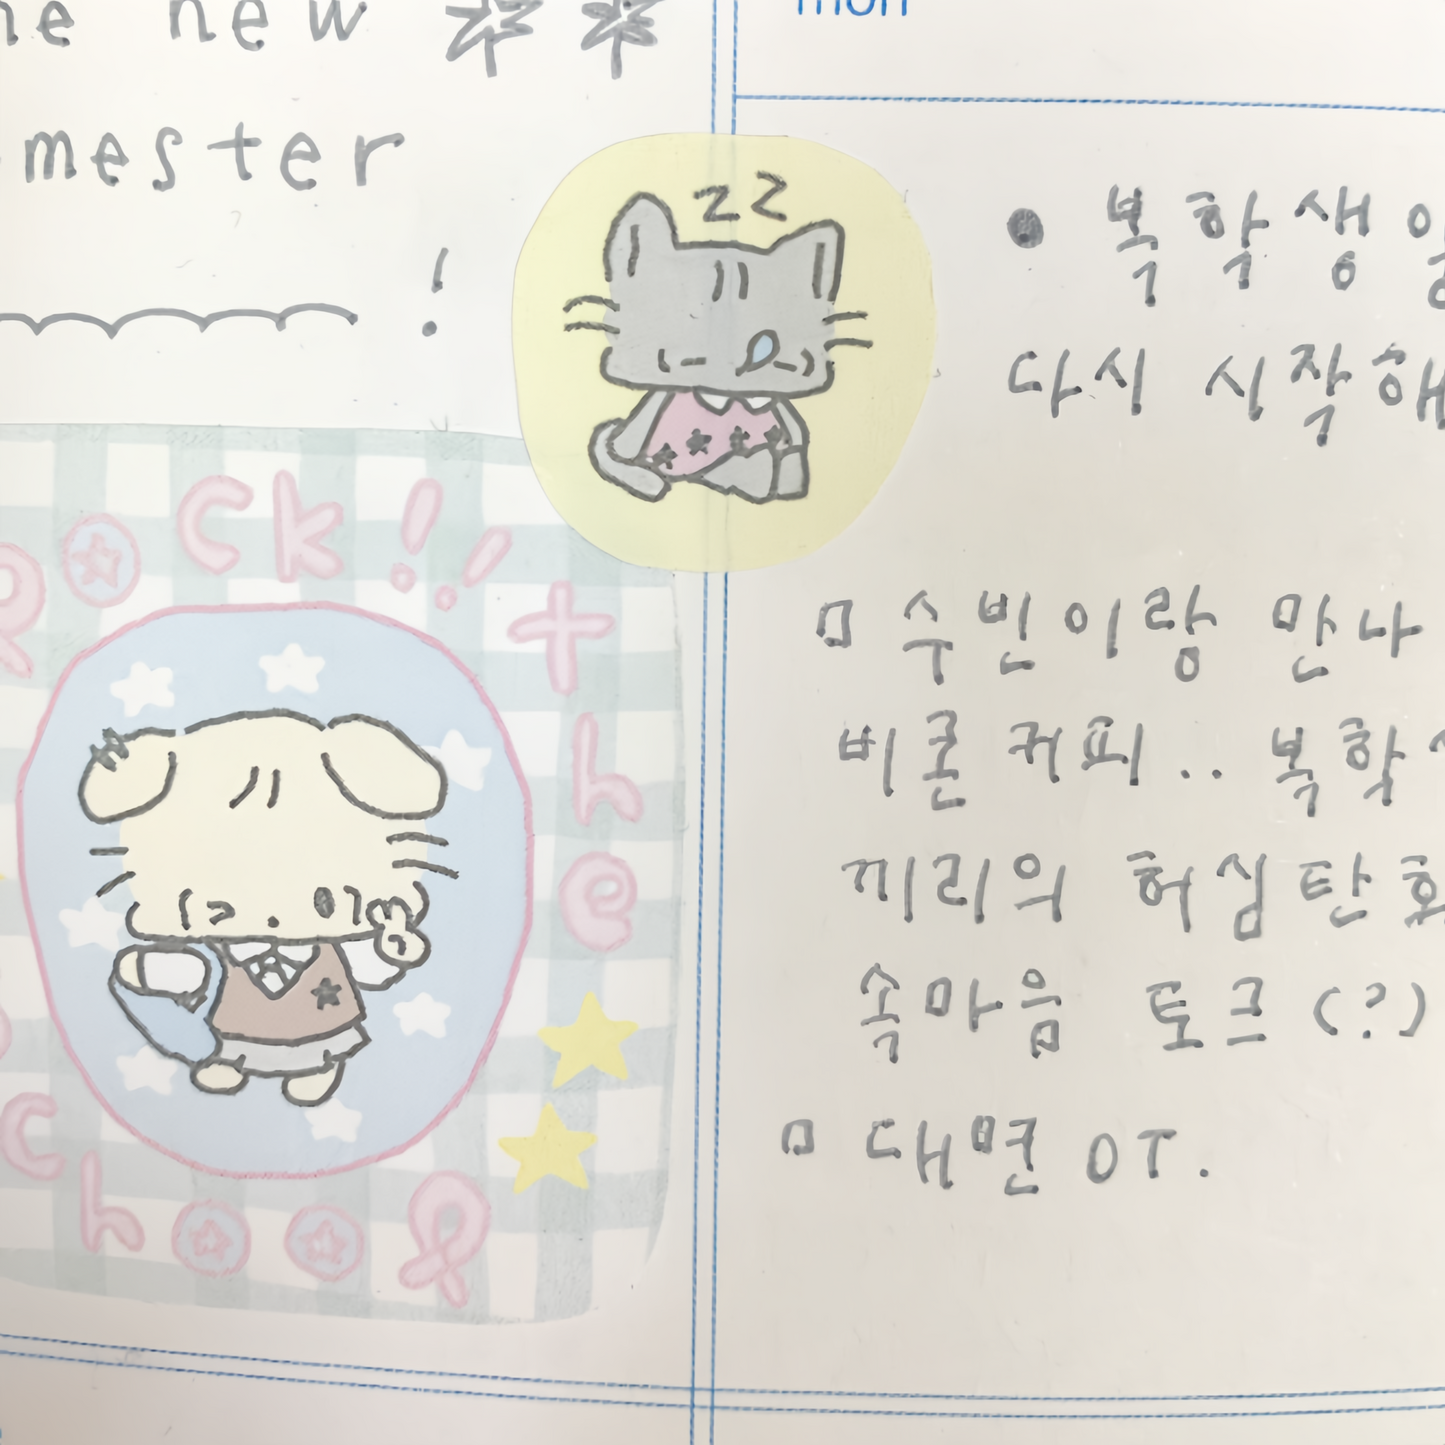 new **
mester
!
Rock!!
the
school
mon
• 복학생
다시 시작해
ㅁ 수빈이랑 만나
비콘커피.. 복학
끼리의 허심탄회
속마음 토크(?)
ㅁ 대면 OT.
zz